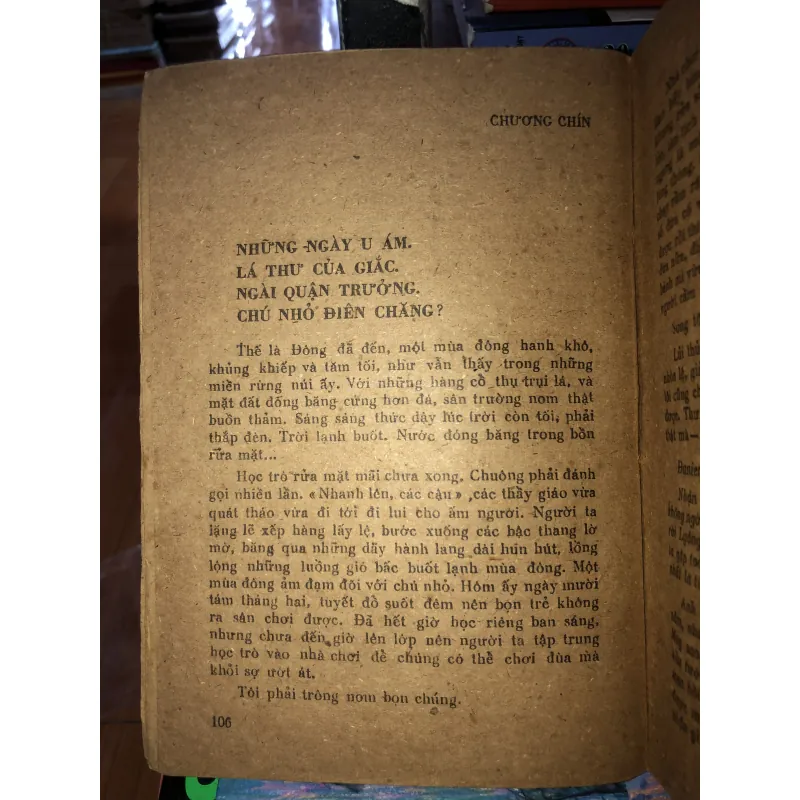 CHƯƠNG CHÍN
NHỮNG NGÀY U ÁM.
LÁ THƯ CỦA GIẮC.
NGÀI QUẬN TRƯỞNG.
CHÚ NHỎ ĐIÊN CHĂNG?
Thế là Đông đã đến, một mùa đông hanh khô,
khủng khiếp và tăm tối, như vẫn thấy trong những
miền rừng núi ấy. Với những hàng cồ thụ trụi lá, và
mặt đất đóng băng cứng hơn đá, sân trường nom thật
buồn thảm. Sáng sáng thức dậy lúc trời còn tối, phải
thắp đèn. Trời lạnh buốt. Nước đóng băng trong bồn
rửa mặt...
Học trò rửa mặt mãi chưa xong. Chuông phải đánh
gọi nhiều lần. «Nhanh lên, các cậu», các thầy giáo vừa
quát tháo vừa đi tới đi lui cho ấm người. Người ta
lặng lẽ xếp hàng lấy lệ, bước xuống các bậc thang lờ
mờ, băng qua những dãy hành lang dài hun hút, lồng
lộng những luồng gió bấc buốt lạnh mùa đông. Một
mùa đông ảm đạm đối với chú nhỏ. Hôm ấy ngày mười
tám tháng hai, tuyết đồ suốt đêm nên bọn trẻ không
ra sân chơi được. Đã hết giờ học riêng ban sáng,
nhưng chưa đến giờ lên lớp nên người ta tập trung
học trò vào nhà chơi đề chúng có thề chơi đùa mà
khỏi sợ ướt át.
Tôi phải trông nom bọn chúng.
106